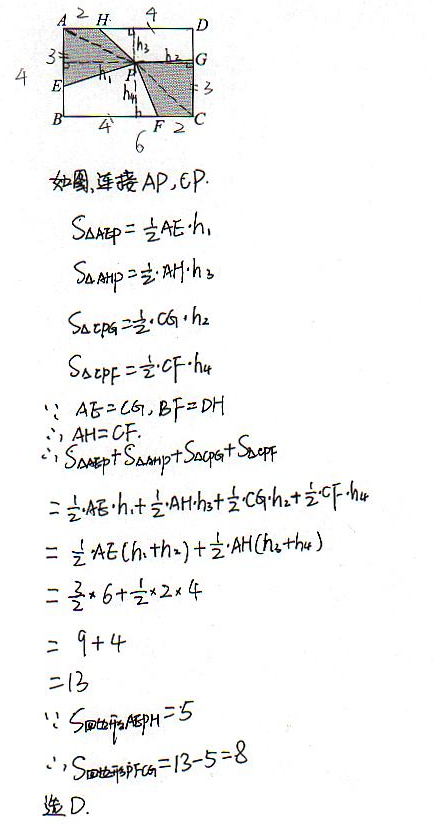 A 2 H 4 D
3 h₃ h₂ G
4 h₁ P 3
E h₄
B 4 F 2 C
6
如图,连接AP,CP.
S△AEP=½AE·h₁
S△AHP=½·AH·h₃
S△CPG=½·CG·h₂
S△CPF=½·CF·h₄
∵ AE=CG,BF=DH
∴ AH=CF.
∴ S△AEP+S△AHP+S△CPG+S△CPF
=½·AE·h₁+½·AH·h₃+½·CG·h₂+½·CF·h₄
=½·AE(h₁+h₂)+½·AH(h₃+h₄)
=3/2×6+½×2×4
=9+4
=13
∵ S四边形AEPH=5
∴ S四边形PFCG=13-5=8
选D.